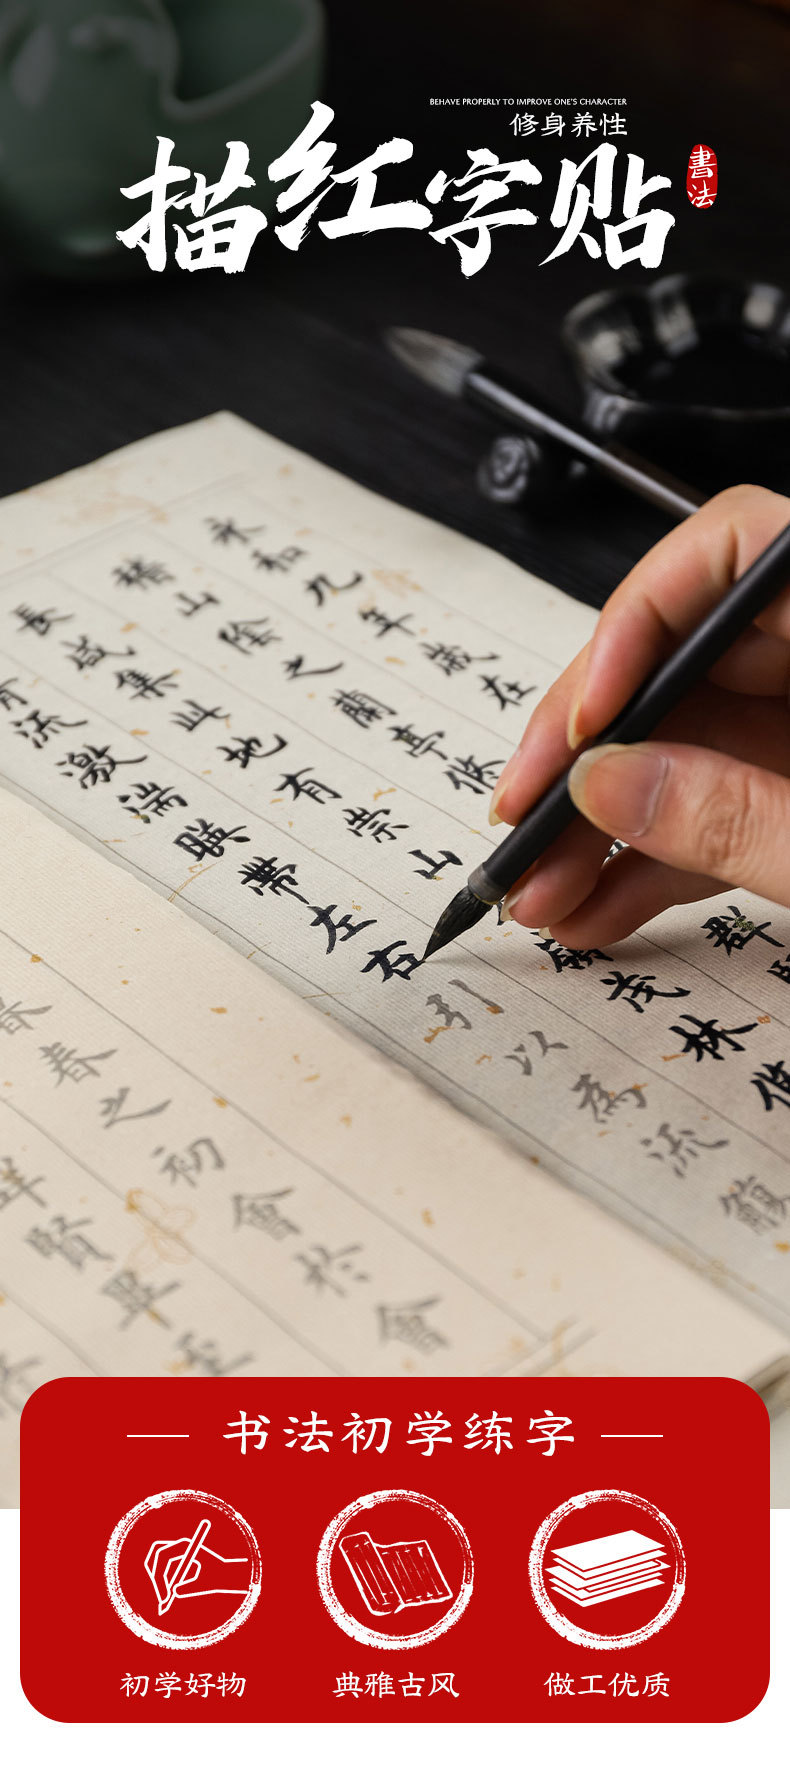 BEHAVE PROPERLY TO IMPROVE ONE'S CHARACTER
修身养性
描红字贴
書法
永和九年歲在
稽山陰之蘭亭脩
群
長咸集此地有崇山
領茂林脩
流激湍暎帶左右引以為流觴
暮春之初會於會
群賢畢至
书法初学练字
初学好物
典雅古风
做工优质